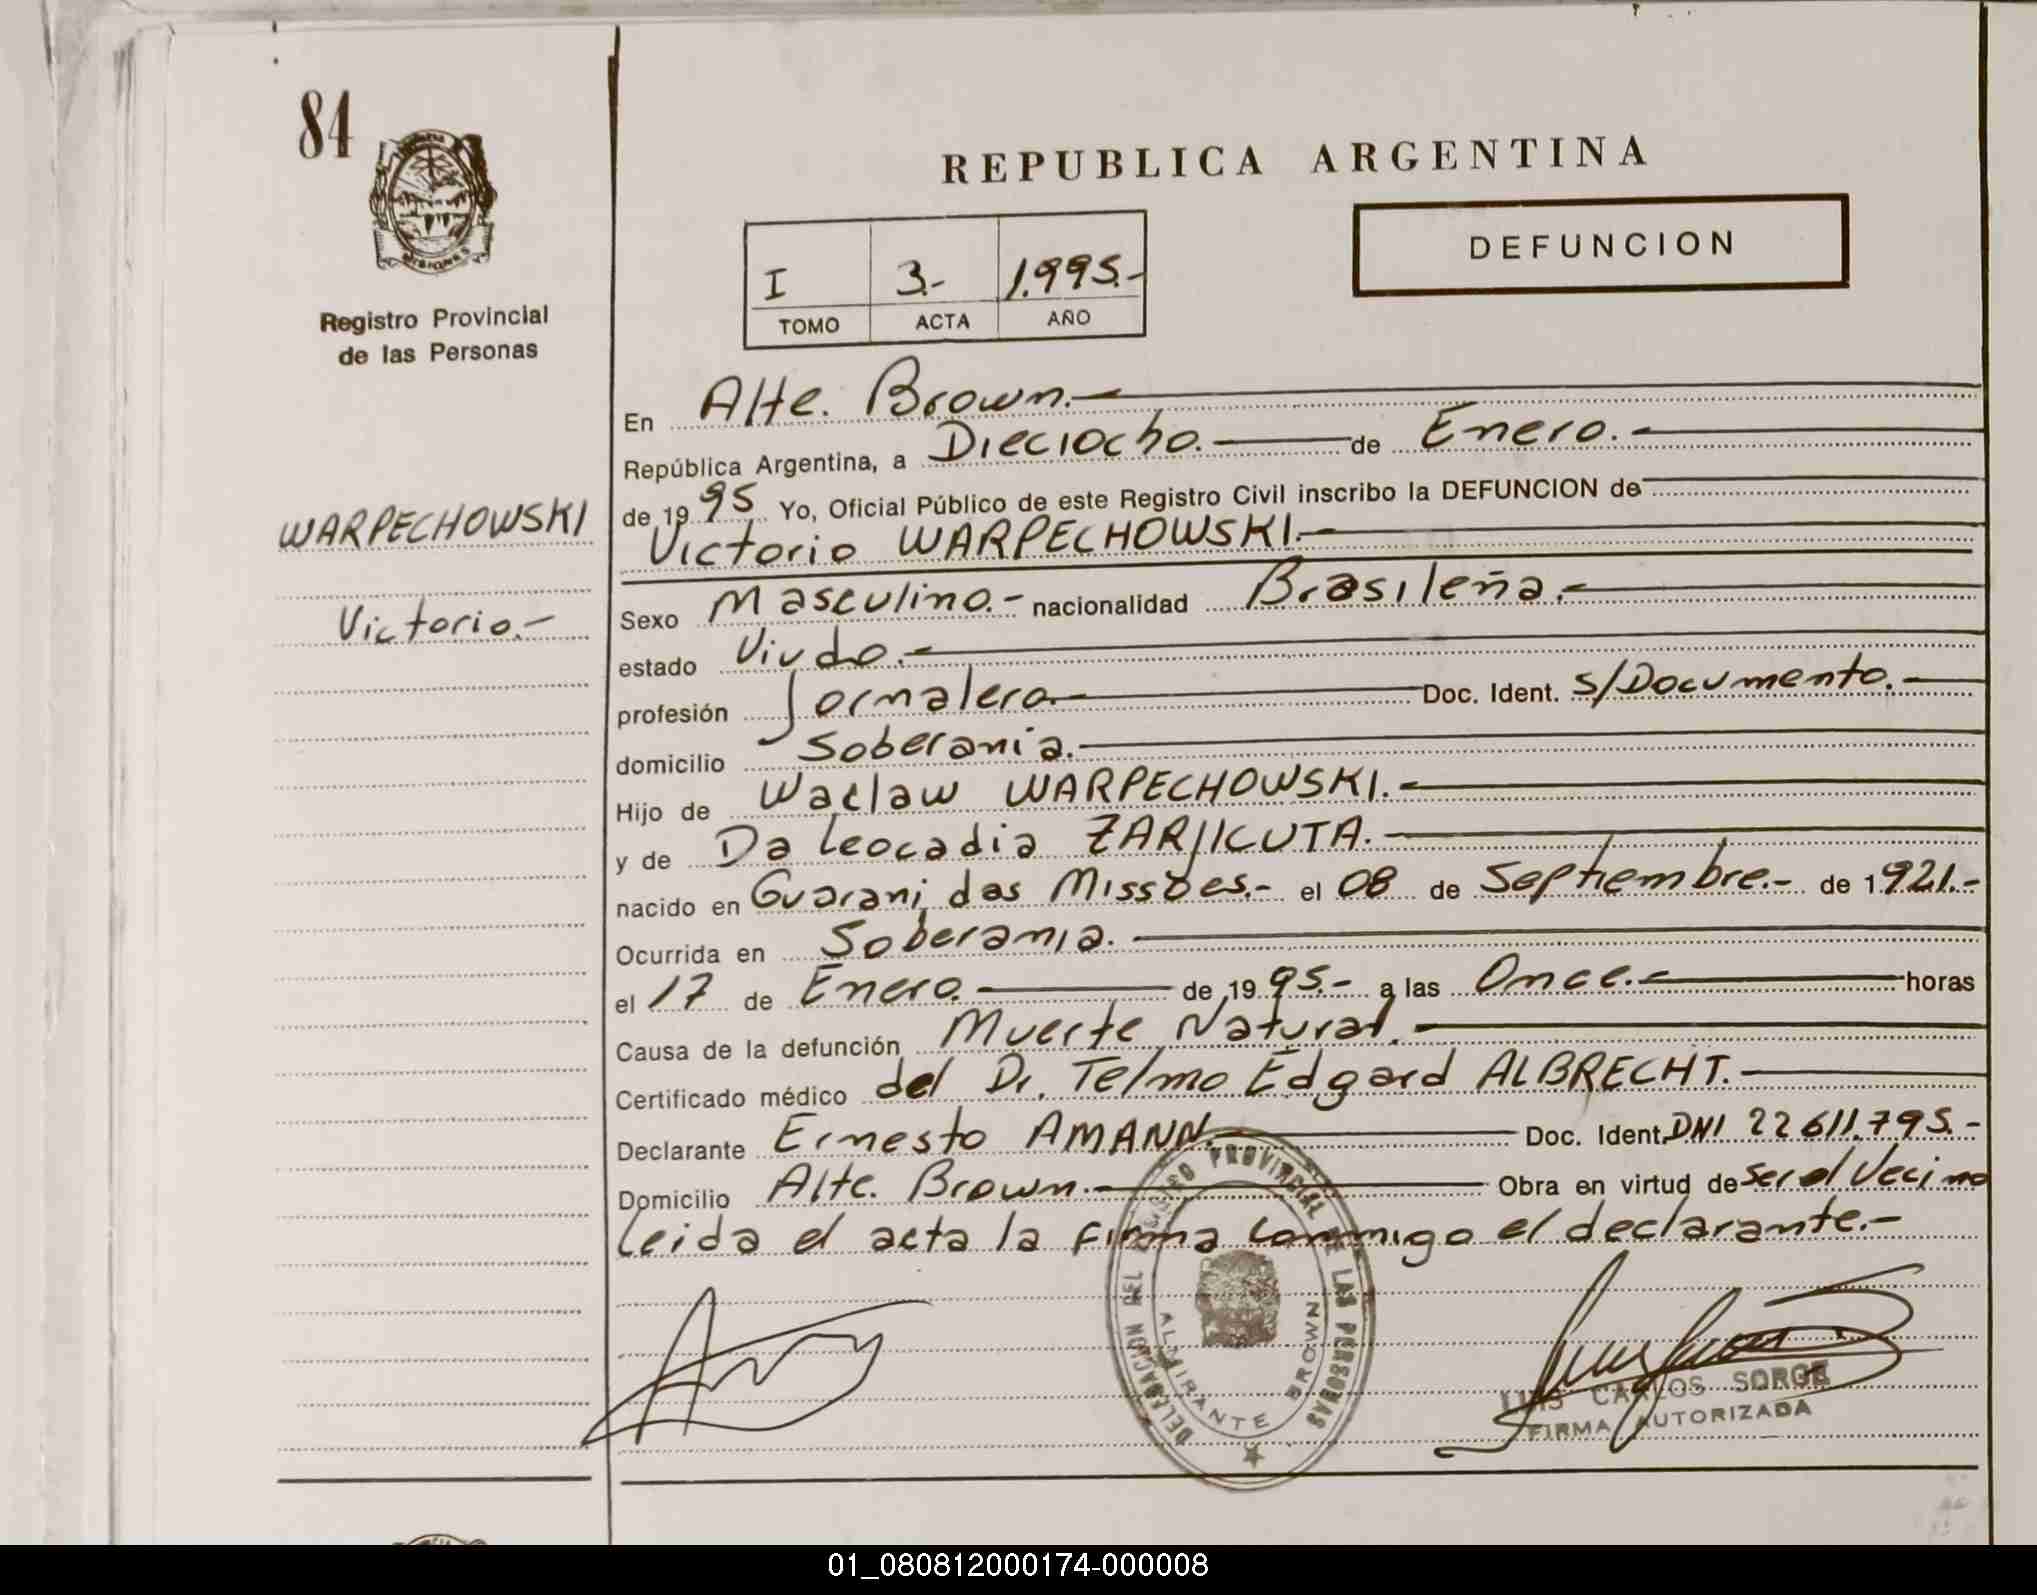 84
MISIONES
Registro Provincial
de las Personas
WARPECHOWSKI
Victorio.-
REPUBLICA ARGENTINA
DEFUNCION
I 3.- 1.995.-
TOMO ACTA AÑO
En Alte. Brown.-
República Argentina, a Dieciocho.- de Enero.-
de 1995 Yo, Oficial Público de este Registro Civil inscribo la DEFUNCION de
Victorio WARPECHOWSKI.-
Sexo Masculino.- nacionalidad Brasileña.-
estado Viudo.-
profesión Jornalero.- Doc. Ident. S/Documento.-
domicilio Soberania.-
Hijo de Waclaw WARPECHOWSKI.-
y de Da Leocadia ZARJICUTA.-
nacido en Guarani das Missões.- el 08 de Septiembre.- de 1.921.-
Ocurrida en Soberania.-
el 17 de Enero.- de 1995.- a las Once.- horas
Causa de la defunción Muerte Natural.-
Certificado médico del Dr. Telmo Edgard ALBRECHT.-
Declarante Ernesto AMANN.- Doc. Ident. DNI 22.611.795.-
Domicilio Alte. Brown.- Obra en virtud de Ser el Vecino
Leida el acta la firma conmigo el declarante.-
DELEGACION DEL REGISTRO PROVINCIAL DE LAS PERSONAS
ALMIRANTE BROWN
LUIS CARLOS SORGE
FIRMA AUTORIZADA
01_080812000174-000008